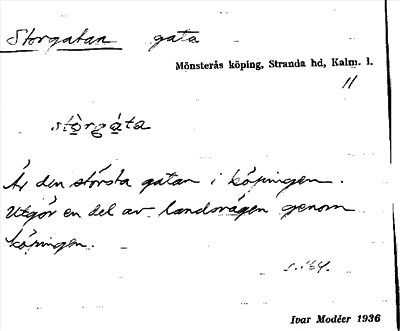 Storgatan gata
Mönsterås köping, Stranda hd, Kalm. l.
11
stòrgáta
Är den största gatan i köpingen.
Utgör en del av landsvägen genom
köpingen.
Ivar Modéer 1936